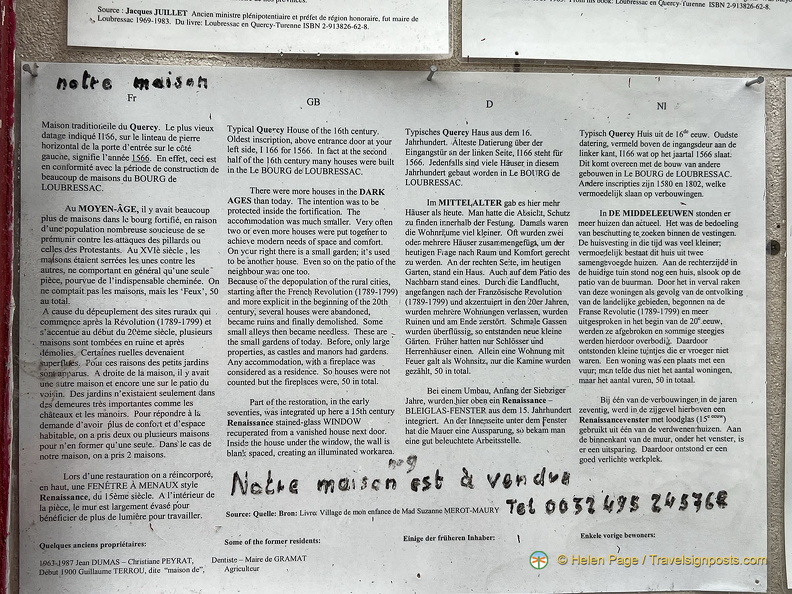 Source : Jacques JUILLET Ancien ministre plénipotentiaire et préfet de région honoraire, fut maire de
Loubressac 1969-1983. Du livre: Loubressac en Quercy-Turenne ISBN 2-913826-62-8.
Loubressac en Quercy-Turenne ISBN 2-913826-62-8.
notre maison
Fr
Maison traditionelle du Quercy. Le plus vieux
datage indiqué I166, sur le linteau de pierre
horizontal de la porte d'entrée sur le côté
gauche, signifie l'année 1566. En effet, ceci est
en conformité avec la période de construction de
beaucoup de maisons du BOURG de
LOUBRESSAC.
Au MOYEN-ÂGE, il y avait beaucoup
plus de maisons dans le bourg fortifié, en raison
d'une population nombreuse soucieuse de se
prémunir contre les attaques des pillards ou
celles des Protestants. Au XVIè siècle, les
maisons étaient serrées les unes contre les
autres, ne comportant en général qu'une seule
pièce, pourvue de l'indispensable cheminée. On
ne comptait pas les maisons, mais les 'Feux', 50
au total.
A cause du dépeuplement des sites ruraux qui
commence après la Révolution (1789-1799) et
s'accentue au début du 20ème siècle, plusieurs
maisons sont tombées en ruine et après
démolies. Certaines ruelles devenaient
superflues. Pour ces raisons des petits jardins
sont apparus. A droite de la maison, il y avait
une autre maison et encore une sur le patio du
voisin. Des jardins n'existaient seulement dans
des demeures très importantes comme les
châteaux et les manoirs. Pour répondre à la
demande d'avoir plus de confort et d'espace
habitable, on a pris deux ou plusieurs maisons
pour n'en former qu'une seule. Dans le cas de
notre maison, on a pris 2 maisons.
Lors d'une restauration on a réincorporé,
en haut, une FENÊTRE À MENAUX style
Renaissance, du 15ème siècle. A l'intérieur de
la pièce, le mur est largement évasé pour
bénéficier de plus de lumière pour travailler.
GB
Typical Quercy House of the 16th century.
Oldest inscription, above entrance door at your
left side, I 166 for 1566. In fact at the second
half of the 16th century many houses were built
in the Le BOURG de LOUBRESSAC.
There were more houses in the DARK
AGES than today. The intention was to be
protected inside the fortification. The
accommodation was much smaller. Very often
two or even more houses were put together to
achieve modern needs of space and comfort.
On your right there is a small garden; it's used
to be another house. Even so on the patio of the
neighbour was one too.
Because of the depopulation of the rural cities,
starting after the French Revolution (1789-1799)
and more explicit in the beginning of the 20th
century, several houses were abandoned,
became ruins and finally demolished. Some
small alleys then became needless. These are
the small gardens of today. Before, only large
properties, as castles and manors had gardens.
Any accommodation, with a fireplace was
considered as a residence. So houses were not
counted but the fireplaces were, 50 in total.
Part of the restoration, in the early
seventies, was integrated up here a 15th century
Renaissance stained-glass WINDOW
recuperated from a vanished house next door.
Inside the house under the window, the wall is
blank spaced, creating an illuminated workarea.
D
Typisches Quercy Haus aus dem 16.
Jahrhundert. Älteste Datierung über der
Eingangstür an der linken Seite, I166 steht für
1566. Jedenfalls sind viele Häuser in diesem
Jahrhundert gebaut worden in Le BOURG de
LOUBRESSAC.
Im MITTELALTER gab es hier mehr
Häuser als heute. Man hatte die Absicht, Schutz
zu finden innerhalb der Festung. Damals waren
die Wohnräume viel kleiner. Oft wurden zwei
oder mehrere Häuser zusammengefügt, um der
heutigen Frage nach Raum und Komfort gerecht
zu werden. An der rechten Seite, im heutigen
Garten, stand ein Haus. Auch auf dem Patio des
Nachbarn stand eines. Durch die Landflucht,
angefangen nach der Französische Revolution
(1789-1799) und akzentuiert in den 20er Jahren,
wurden mehrere Wohnungen verlassen, wurden
Ruinen und am Ende zerstört. Schmale Gassen
wurden überflüssig, so entstanden neue kleine
Gärten. Früher hatten nur Schlösser und
Herrenhäuser einen. Allein eine Wohnung mit
Feuer galt als Wohnsitz, nur die Kamine wurden
gezählt, 50 in total.
Bei einem Umbau, Anfang der Siebziger
Jahre, wurden hier oben ein Renaissance –
BLEIGLAS-FENSTER aus dem 15. Jahrhundert
integriert. An der Innenseite unter dem Fenster
hat die Mauer eine Aussparung, so bekam man
eine gut beleuchtete Arbeitsstelle.
Nl
Typisch Quercy Huis uit de 16de eeuw. Oudste
datering, vermeld boven de ingangsdeur aan de
linker kant, I166 wat op het jaartal 1566 slaat.
Dit komt overeen met de bouw van andere
gebouwen in Le BOURG de LOUBRESSAC.
Andere inscripties zijn 1580 en 1802, welke
vermoedelijk slaan op verbouwingen.
In DE MIDDELEEUWEN stonden er
meer huizen dan actueel. Het was de bedoeling
van beschutting te zoeken binnen de vestingen.
De huisvesting in die tijd was veel kleiner;
vermoedelijk bestaat dit huis uit twee
samengevoegde huizen. Aan de rechterzijde in
de huidige tuin stond nog een huis, alsook op de
patio van de buurman. Door het in verval raken
van deze woningen als gevolg van de ontvolking
van de landelijke gebieden, begonnen na de
Franse Revolutie (1789-1799) en meer
uitgesproken in het begin van de 20e eeuw,
werden ze afgebroken en sommige steegjes
werden hierdoor overbodig. Daardoor
ontstonden kleine tuintjes die er vroeger niet
waren. Een woning was een plaats met een
vuur; men telde dus niet het aantal woningen,
maar het aantal vuren, 50 in totaal.
Bij één van de verbouwingen in de jaren
zeventig, werd in de zijgevel hierboven een
Renaissancevenster met loodglas (15e eeuw)
gebruikt uit één van de verdwenen huizen. Aan
de binnenkant van de muur, onder het venster, is
er een uitsparing. Daardoor ontstond er een
goed verlichte werkplek.
n°9
Notre maison est à vendre
Tel 0032 495 245768
Source: Quelle: Bron: Livre: Village de mon enfance de Mad Suzanne MEROT-MAURY
Quelques anciens propriétaires: Some of the former residents: Einige der früheren Inhaber: Enkele vorige bewoners:
1963-1987 Jean DUMAS – Christiane PEYRAT, Dentiste – Maire de GRAMAT
Début 1900 Guillaume TERROU, dite "maison de", Agriculteur
© Helen Page / Travelsignposts.com